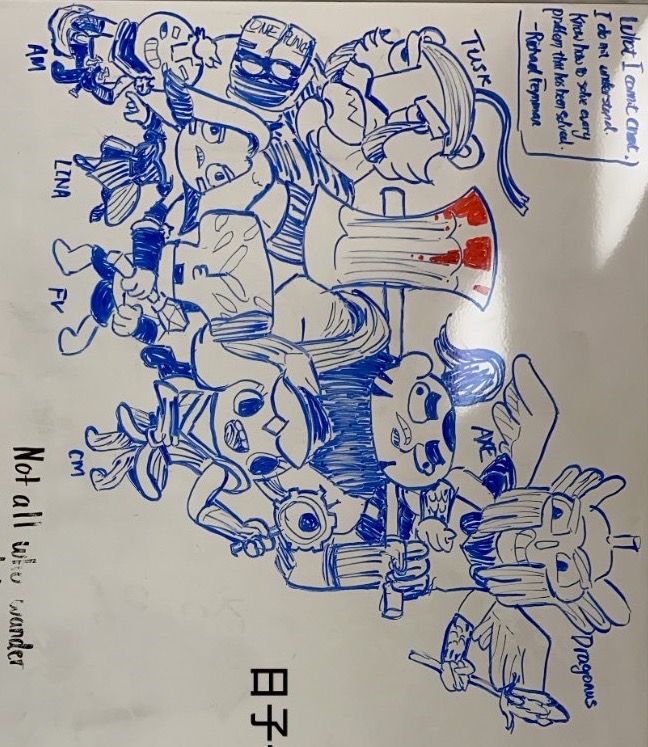 What I cannot creat.
I do not understand.
Know how to solve every
problem that has been solved.
-Richard Feynman
Dragonus
AXE
TUSK
ONE PUNCH
日子
AM
LINA
FV
CM
Not all who wander